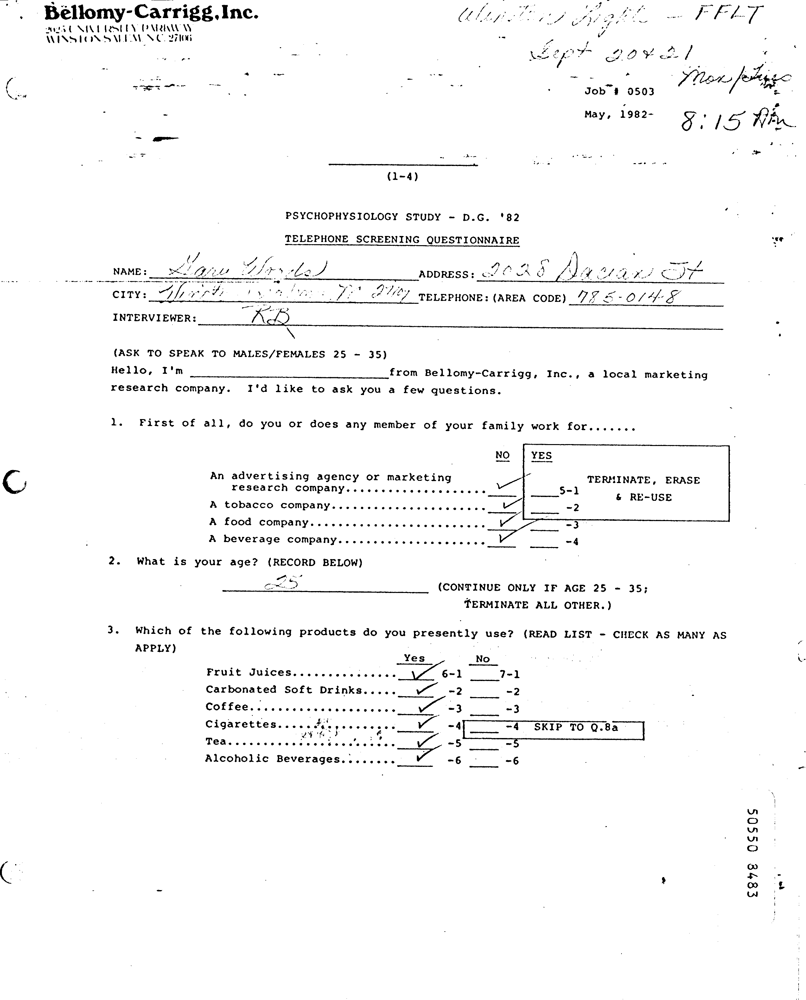 Bellomy-Carrigg, Inc.
2025 UNIVERSITY PARKWAY
WINSTON SALEM N.C. 27106
Winston Light - FFLT
Sept 20 & 21
Job # 0503
May, 1982-
8:15 Am
(1-4)
PSYCHOPHYSIOLOGY STUDY - D.G. '82
TELEPHONE SCREENING QUESTIONNAIRE
NAME: Gary Woods ADDRESS: 2028 Dacian St
CITY: TELEPHONE: (AREA CODE) 785-0148
INTERVIEWER: RB
(ASK TO SPEAK TO MALES/FEMALES 25 - 35)
Hello, I'm ____ from Bellomy-Carrigg, Inc., a local marketing
research company. I'd like to ask you a few questions.
1. First of all, do you or does any member of your family work for.......
NO YES
An advertising agency or marketing
research company.................... ✓ 5-1 TERMINATE, ERASE
& RE-USE
A tobacco company..................... ✓ -2
A food company........................ ✓ -3
A beverage company.................... ✓ -4
2. What is your age? (RECORD BELOW)
25 (CONTINUE ONLY IF AGE 25 - 35;
TERMINATE ALL OTHER.)
3. Which of the following products do you presently use? (READ LIST - CHECK AS MANY AS
APPLY)
Yes No
Fruit Juices............... ✓ 6-1 7-1
Carbonated Soft Drinks..... ✓ -2 -2
Coffee..................... ✓ -3 -3
Cigarettes................. ✓ -4 -4 SKIP TO Q.8a
Tea........................ ✓ -5 -5
Alcoholic Beverages........ ✓ -6 -6
50550 8483